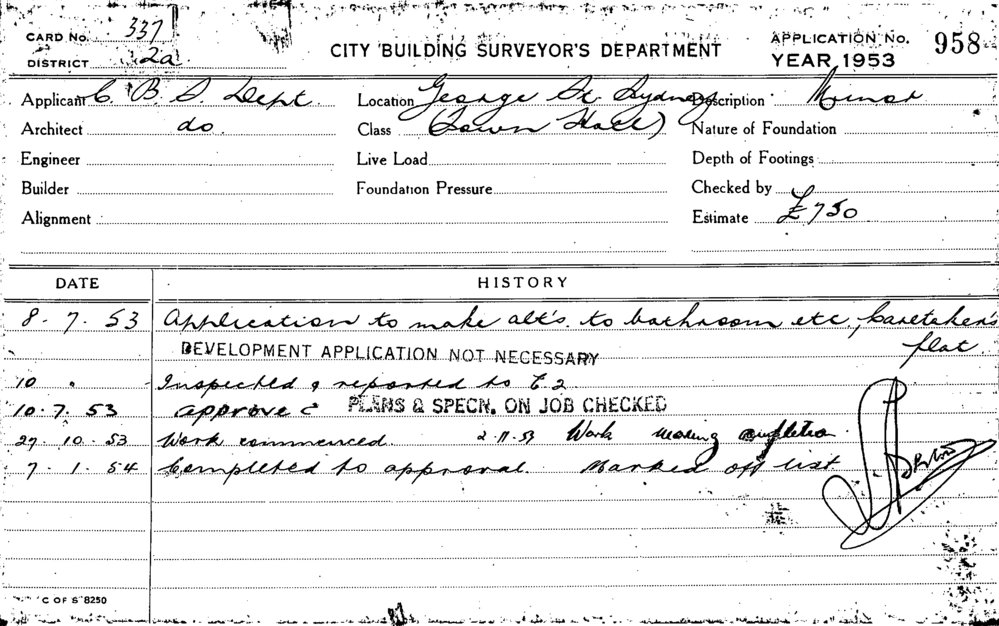 CARD No. 337
DISTRICT 2a
CITY BUILDING SURVEYOR'S DEPARTMENT
APPLICATION No. 958
YEAR 1953
Applicant C. B. S. Dept Location George St Sydney Description Minor
Architect do. Class (Town Hall) Nature of Foundation
Engineer Live Load Depth of Footings
Builder Foundation Pressure Checked by
Alignment Estimate £750
DATE HISTORY
8. 7. 53 Application to make alt's. to bathroom etc, Caretaker's
flat.
DEVELOPMENT APPLICATION NOT NECESSARY
10 " Inspected & reported to
10. 7. 53 approved PLANS & SPECN. ON JOB CHECKED
27. 10. 53 Work commenced. 2.11.53 Work nearing completion.
7. 1. 54 Completed to approval. Marked off list
C OF S 8250